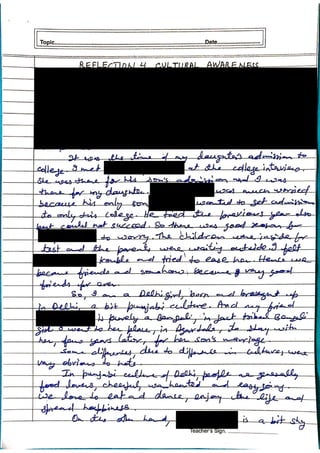 Topic Date
REFLECTION 4 CULTURAL AWARENESS
It was the time of my daughter's admission to
college. I met at the college interview.
She was there for his son's admission and I was
there for my daughter. was much worried
because his only son wanted to get admission
to only this college. He tried the previous year also
but could not succeed. So there was good reason for
to worry. The children were inside for
test and the parents were waiting outside. I felt
trouble and tried to ease her. Hence we
became friends and somehow, became very good
friends for ever.
So, I am a Delhi girl, born and brought up
in Delhi, a bit punjabi culture. And my friend
is purely a Bengali, in fact tribal Bengali
girl. I went to her place, in Agartala, to stay with
her, few years later, for her son's marriage.
Some differences, due to difference in culture, were
very obvious to note.
In punjabi culture of Delhi, people are generally
food lovers, cheerful, and easygoing.
We love to eat and dance, enjoy the life and
spread happiness.
On the other hand, is a bit shy
Teacher's Sign